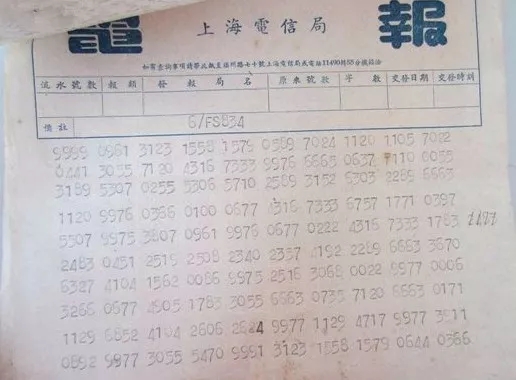 電報
上海電信局
如有查詢事項請帶此報至福州路七十號上海電信局或電話11490轉65分機洽詢
流水號數 報類 發報局名 原來號數 字數 交發日期 交發時刻
備註 6/FS834
9999 0961 3123 1558 1579 0589 7024 1120 1105 7022
0441 3055 7120 4316 7333 9976 6665 0637 7110 0055
3189 5307 0255 5306 5710 2589 3152 6303 2289 6663
1120 9976 0366 0100 0677 4316 7333 6757 1771 0397
5507 9975 3807 0961 9976 0677 0222 4316 7333 1783
2483 0451 2519 2508 2340 2357 4192 2289 6663 3670
6327 4104 1562 0086 9975 2516 3068 0022 9977 0006
3266 0677 4905 1783 3055 6663 0735 7120 6663 0171
1129 6852 4104 2606 2624 9977 1129 4717 9977 3911
0892 9977 3055 5470 9991 3123 1558 1579 0644 0366